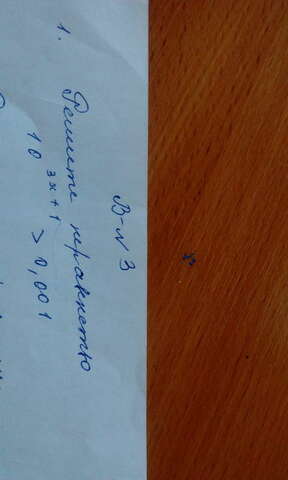 В-№3
1. Решите неравенство
10^3x+1 > 0,001